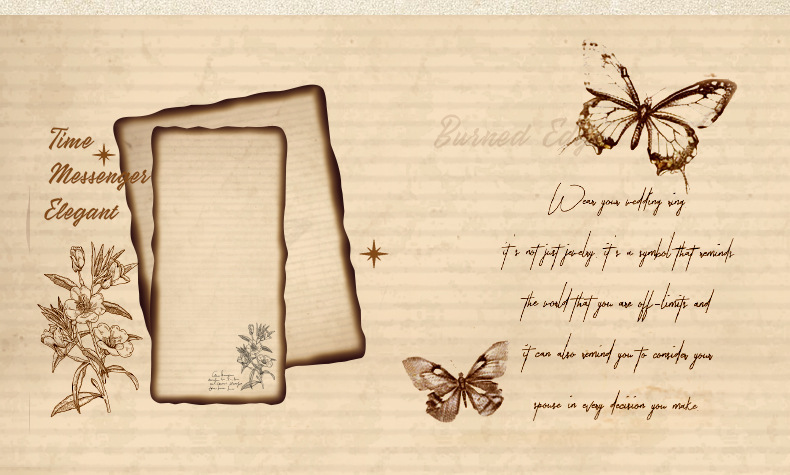 Time
Messenger
Elegant
Burned Edge
Wear your wedding ring
it's not just jewelry, it's a symbol that reminds
the world that you are off-limits and
it can also remind you to consider your
spouse in every decision you make